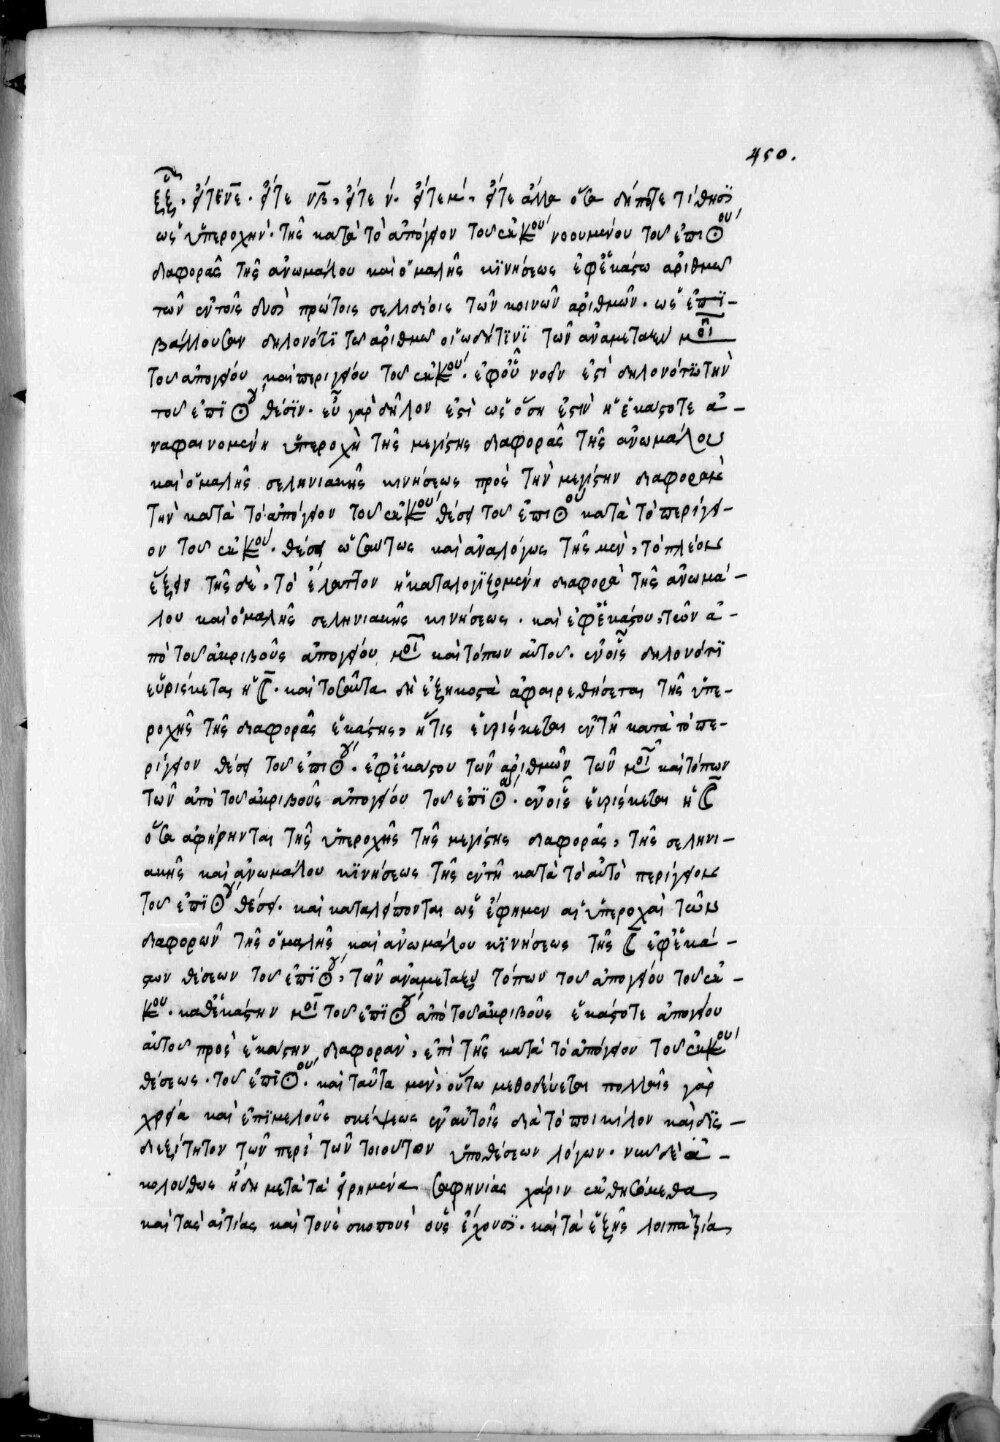 450.
ξξ, εἴτε νε. εἴτε νβ, εἴτε ν. εἴτε κ, εἴτε ἄλλα ὅσα δήποτε τίθησϊ
ὡς ὑπεροχὴν τῆς κατὰ τὸ ἀπόγειον τοῦ ἐκκου νοουμένου τοῦ ἐπι☉ου
διαφορᾶς τῆς ἀνωμάλου καὶ ὁμαλῆς κϊνήσεως ἐφ' ἑκάστω ἀριθμω
τῶν ἐν τοῖς δυσὶ πρώτοις σελιδίοις τῶν κοινῶν ἀριθμῶν. ὡς ἐπϊ-
βάλλουσαν δηλονότϊ τῶ ἀριθμω οἱωδήτϊνϊ τῶν ἀναμεταξὺ μοι
τοῦ ἀπογείου καὶ περιγείου τοῦ ἐκκου. ἐφ' οὗ νοεῖν ἐστὶ δηλονότϊ τὴν
τοῦ ἐπϊ☉ου θέσϊν. εὖ γὰρ δῆλον ἐστὶ ὡς ὅση ἐστὶν ἡ ἑκάστοτε ἀ-
ναφαινομένη ὑπεροχὴ τῆς μεγίστης διαφορᾶς τῆς ἀνωμάλου
καὶ ὁμαλῆς σεληνιακῆς κινήσεως πρὸς τὴν μεγίστην διαφορὰν
τὴν κατὰ τὸ ἀπόγειον τοῦ ἐκκου θέσει τοῦ ἐπι☉ου κατὰ τὸ περίγει-
ον τοῦ ἐκκου. θέσει ὡσαύτως καὶ ἀναλόγως τῆς μὲν, τὸ πλέον
ἕξειν τῆς δὲ, τὸ ἔλαττον ἡ καταλογϊζομένη διαφορὰ τῆς ἀνωμά-
λου καὶ ὁμαλῆς σεληνιακῆς κινήσεως. καὶ ἐφ' ἑκάστου, τῶν ἀ-
πὸ τοῦ ἀκριβοῦς ἀπογείου μοι καὶ τόπων αὐτοῦ. ἐν οἷς δηλονότϊ
εὑρίσκεται ἡ ☾. καὶ τοσαῦτα δὴ ἑξηκοστὰ ἀφαιρεθήσεται τῆς ὑπε-
ροχῆς τῆς διαφορᾶς ἑκάστης, ἥτις εὑρίσκεται ἐν τῆ κατὰ τὸ πε-
ρίγειον θέσει τοῦ ἐπι☉ου. ἐφ' ἑκάστου τῶν ἀριθμῶν τῶν μοι καὶ τόπων
τῶν ἀπὸ τοῦ ἀκριβοῦς ἀπογείου τοῦ ἐπϊ☉ου. ἐν οἷς εὑρίσκεται ἡ ☾
ὅσα ἀφήρηνται τῆς ὑπεροχῆς τῆς μεγίστης διαφορᾶς, τῆς σεληνι-
ακῆς καὶ ἀνωμάλου κϊνήσεως τῆς ἐν τῆ κατὰ τὸ αὐτὸ περίγειον
τοῦ ἐπϊ☉ου θέσει. καὶ καταλείπονται ὡς ἔφημεν αἱ ὑπεροχαὶ τῶν
διαφορῶν τῆς ὁμαλῆς καὶ ἀνωμάλου κϊνήσεως τῆς ☾ ἐφ' ἑκά-
στων θέσεων τοῦ ἐπϊ☉ου, τῶν ἀναμεταξὺ τόπων τοῦ ἀπογείου τοῦ ἐκ-
κου. καθ' ἑκάστην μοι τοῦ ἐπϊ☉ου ἀπὸ τοῦ ἀκριβοῦς ἑκάστοτε ἀπογείου
αὐτοῦ πρὸς ἑκάστην διαφορὰν, ἐπὶ τῆς κατὰ τὸ ἀπόγειον τοῦ ἐκκου
θέσεως. τοῦ ἐπϊ☉ου. καὶ ταῦτα μὲν, οὕτω μεθοδεύεται πολλῆς γὰρ
χρεία καὶ ἐπϊμελοῦς σκέψεως ἐν αὐτοῖς διὰ τὸ ποικίλον καὶ δϊς-
διεξίτητον τῶν περὶ τῶν τοιούτων ὑποθέσεων λόγων. νῦν δὲ ἀ-
κολούθως ἤδη μετὰ τὰ εἰρημένα σαφηνίας χάριν ἐκθησόμεθα
καὶ τὰς αἰτίας καὶ τοὺς σκοποὺς οὓς ἔχουσϊ. καὶ τὰ ἑξῆς λοιπὰ τρία